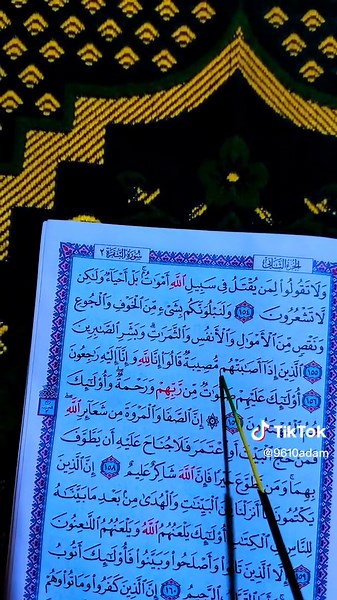 الجزء الثاني
سورة البقرة ٢
وَلَا تَقُولُوا لِمَن يُقْتَلُ فِي سَبِيلِ اللَّهِ أَمْوَاتٌ بَلْ أَحْيَاءٌ وَلَٰكِن
لَّا تَشْعُرُونَ ١٥٤ وَلَنَبْلُوَنَّكُم بِشَيْءٍ مِّنَ الْخَوْفِ وَالْجُوعِ
وَنَقْصٍ مِّنَ الْأَمْوَالِ وَالْأَنفُسِ وَالثَّمَرَاتِ وَبَشِّرِ الصَّابِرِينَ
١٥٥ الَّذِينَ إِذَا أَصَابَتْهُم مُّصِيبَةٌ قَالُوا إِنَّا لِلَّهِ وَإِنَّا إِلَيْهِ رَاجِعُونَ
١٥٦ أُولَٰئِكَ عَلَيْهِمْ صَلَوَاتٌ مِّن رَّبِّهِمْ وَرَحْمَةٌ وَأُولَٰئِكَ
إِنَّ الصَّفَا وَالْمَرْوَةَ مِن شَعَائِرِ اللَّهِ
فَمَنْ حَجَّ الْبَيْتَ أَوِ اعْتَمَرَ فَلَا جُنَاحَ عَلَيْهِ أَن يَطَّوَّفَ
بِهِمَا وَمَن تَطَوَّعَ خَيْرًا فَإِنَّ اللَّهَ شَاكِرٌ عَلِيمٌ ١٥٨ إِنَّ الَّذِينَ
يَكْتُمُونَ مَا أَنزَلْنَا مِنَ الْبَيِّنَاتِ وَالْهُدَىٰ مِن بَعْدِ مَا بَيَّنَّاهُ
لِلنَّاسِ فِي الْكِتَابِ أُولَٰئِكَ يَلْعَنُهُمُ اللَّهُ وَيَلْعَنُهُمُ اللَّاعِنُونَ
١٥٩ إِلَّا الَّذِينَ تَابُوا وَأَصْلَحُوا وَبَيَّنُوا فَأُولَٰئِكَ أَتُوبُ
الرَّحِيمُ ١٦٠ إِنَّ الَّذِينَ كَفَرُوا وَمَاتُوا وَهُمْ
TikTok
@9610adam